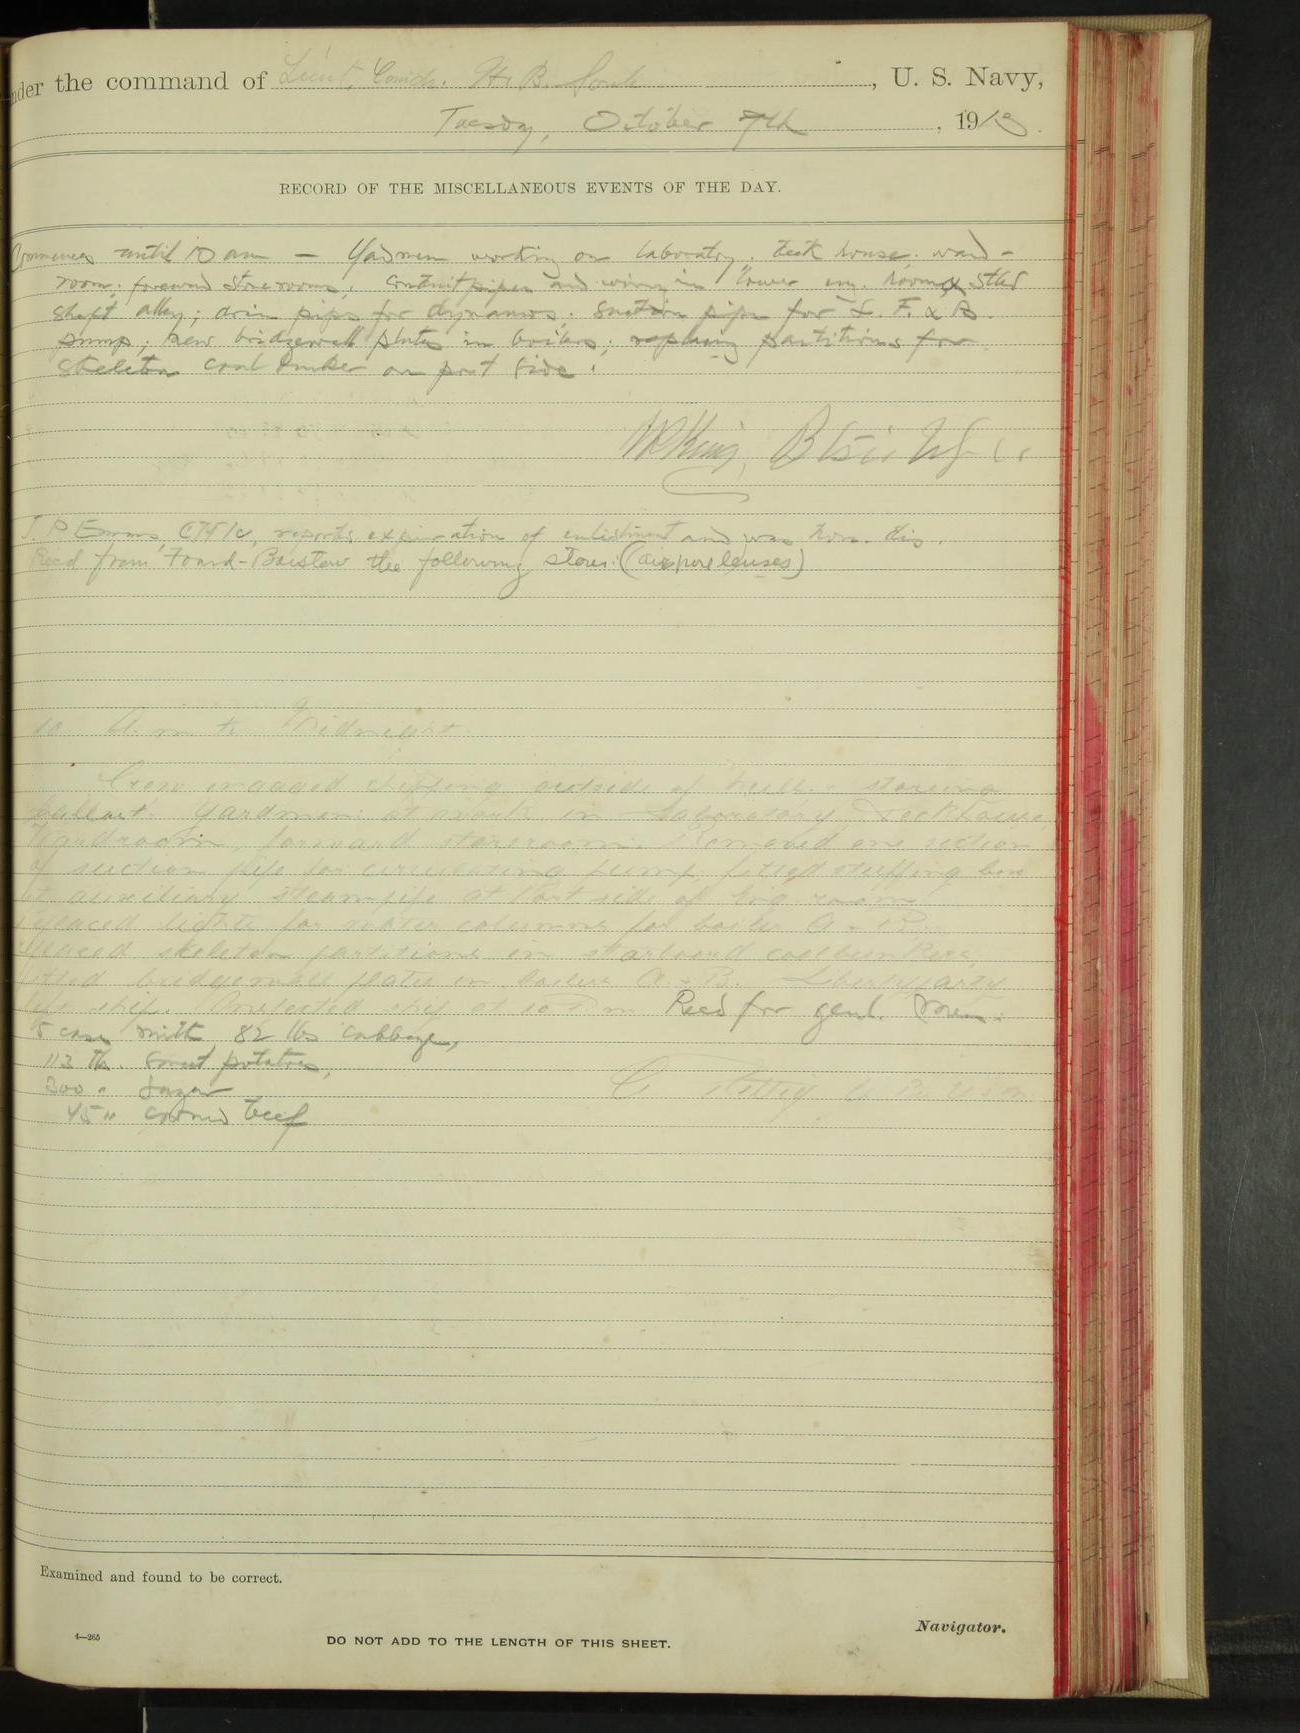 nder the command of Lieut. Comdr. H. B. Soule, U. S. Navy,
Tuesday, October 7th, 1919.
RECORD OF THE MISCELLANEOUS EVENTS OF THE DAY.
Commences until 10 am — Yardmen working on laboratory. deck house. ward-
room; forward storerooms; conduit pipes and wiring in lower eng. room & stbd
shaft alley; drain pipes for dynamos. Suction pipe for F. & B.
pump; new bridgewall plates in boilers; replacing partitions for
skeleton coal bunker on port side.
W.R. King,
J. P. Emms, reports expiration of enlistment and was hon. dis.
Recd from Foard-Barstow the following stores:
10 A. m to Midnight.
Crew engaged chipping outside of hull & storing
ballast. Yardmen at work in Laboratory, Deckhouse,
Wardroom, forward storeroom. Removed one section
of suction pipe for circulating pump, fitted stuffing box
at auxiliary steampipe at Port side of Eng room
replaced lights for water columns for boiler A & B.
replaced skeleton partitions in starboard coalbunkers,
fitted bridgewall plates in boilers A & B. Libertyparty
left ship. Inspected ship at 10 P m Recd for genl. Mess:
5 cases milk 82 lbs cabbage,
113 lb. sweet potatoes,
300 " sugar
45 " corned beef
Examined and found to be correct.
Navigator.
4—265
DO NOT ADD TO THE LENGTH OF THIS SHEET.